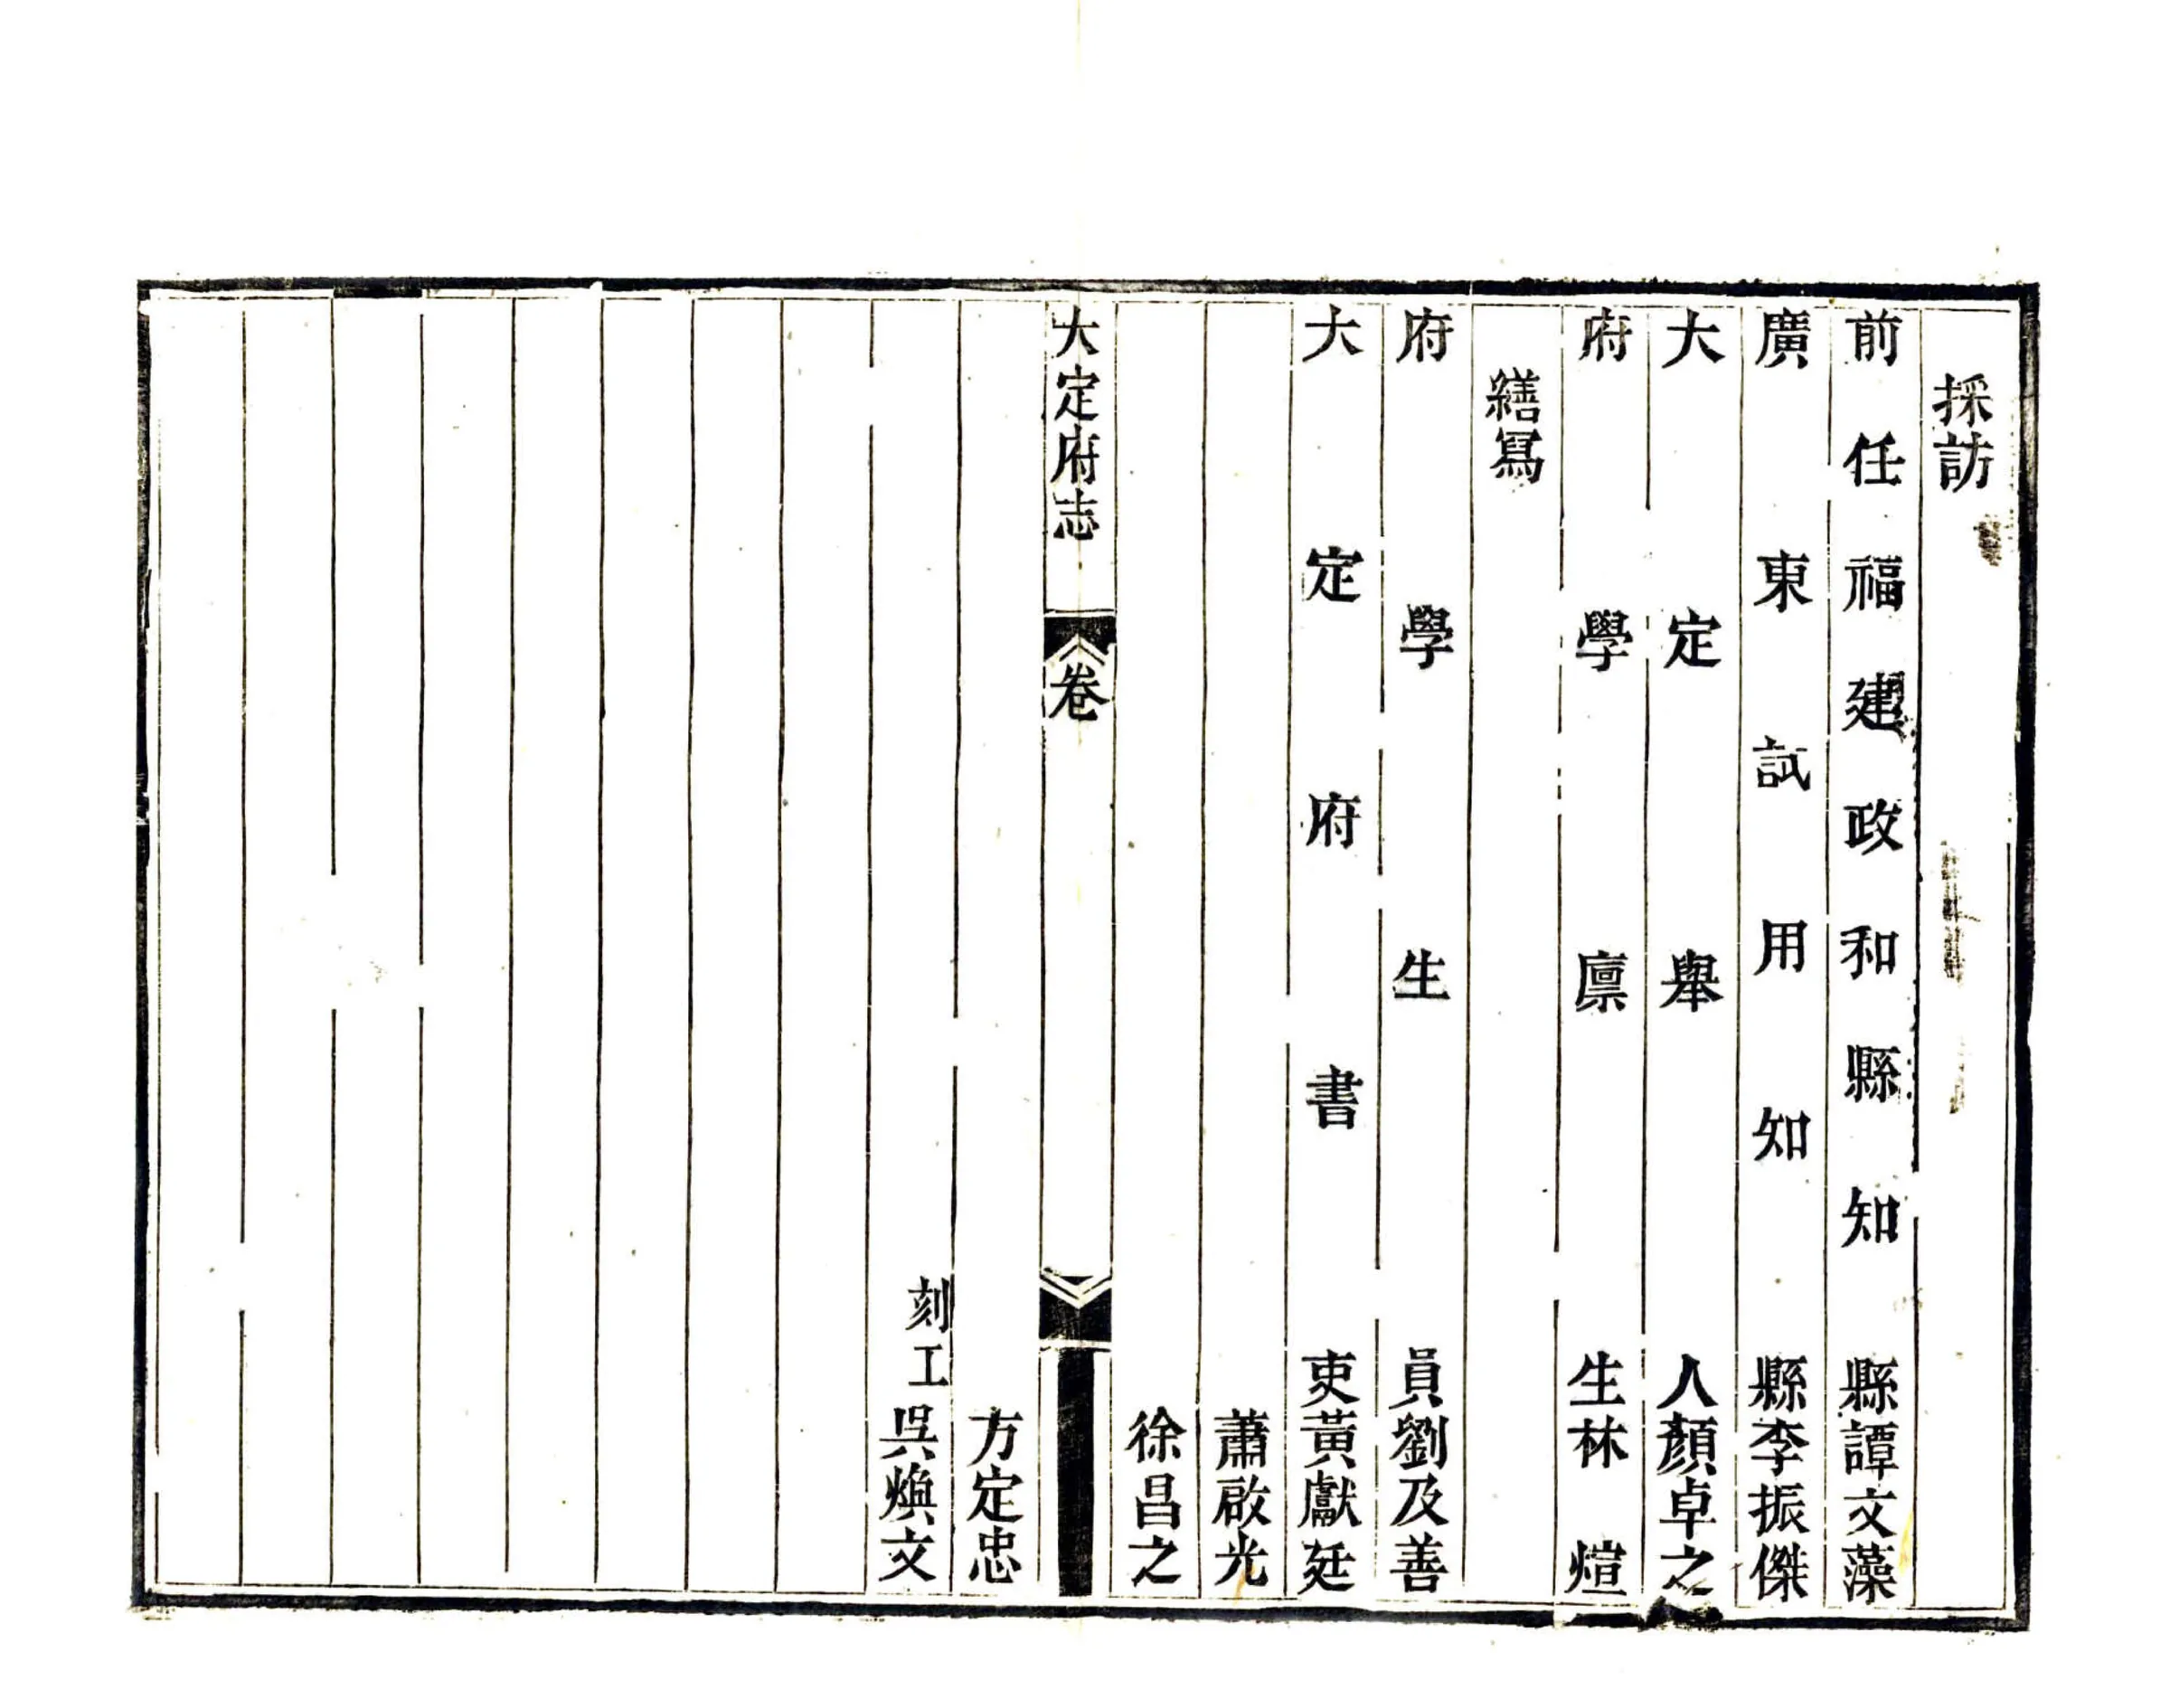 採訪
前任福建政和縣知縣譚文藻
廣東試用知縣李振傑
大定舉人顏卓之
府學廩生林煊
繕寫
府學生員劉及善
大定府書吏黃獻廷
蕭啟光
徐昌之
大定府志 卷
方定忠
刻工吳煥文